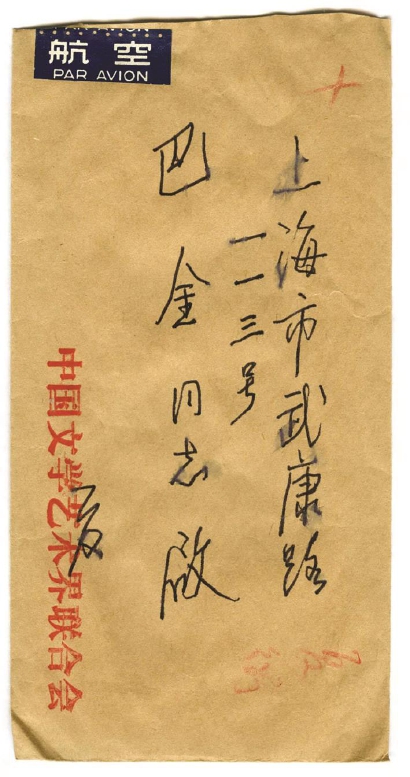 航空
PAR AVION
上海市武康路
一一三号
巴金同志启
中国文学艺术界联合会